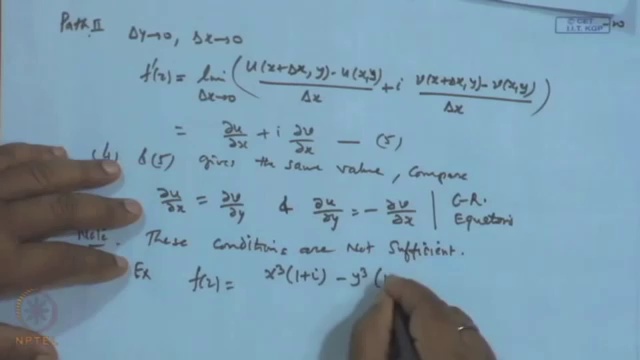 Path II Δy→0, Δx→0
© CET
I.I.T. KGP
f'(z) = lim Δx→0 ( (u(x+Δx, y) - u(x,y))/Δx + i (v(x+Δx, y) - v(x,y))/Δx )
= ∂u/∂x + i ∂v/∂x — (5)
(4) & (5) gives the same value, compare
∂u/∂x = ∂v/∂y & ∂u/∂y = - ∂v/∂x | C-R. Equations
Note. These conditions are Not Sufficient.
Ex f(z) = x³(1+i) - y³(1
NPTEL